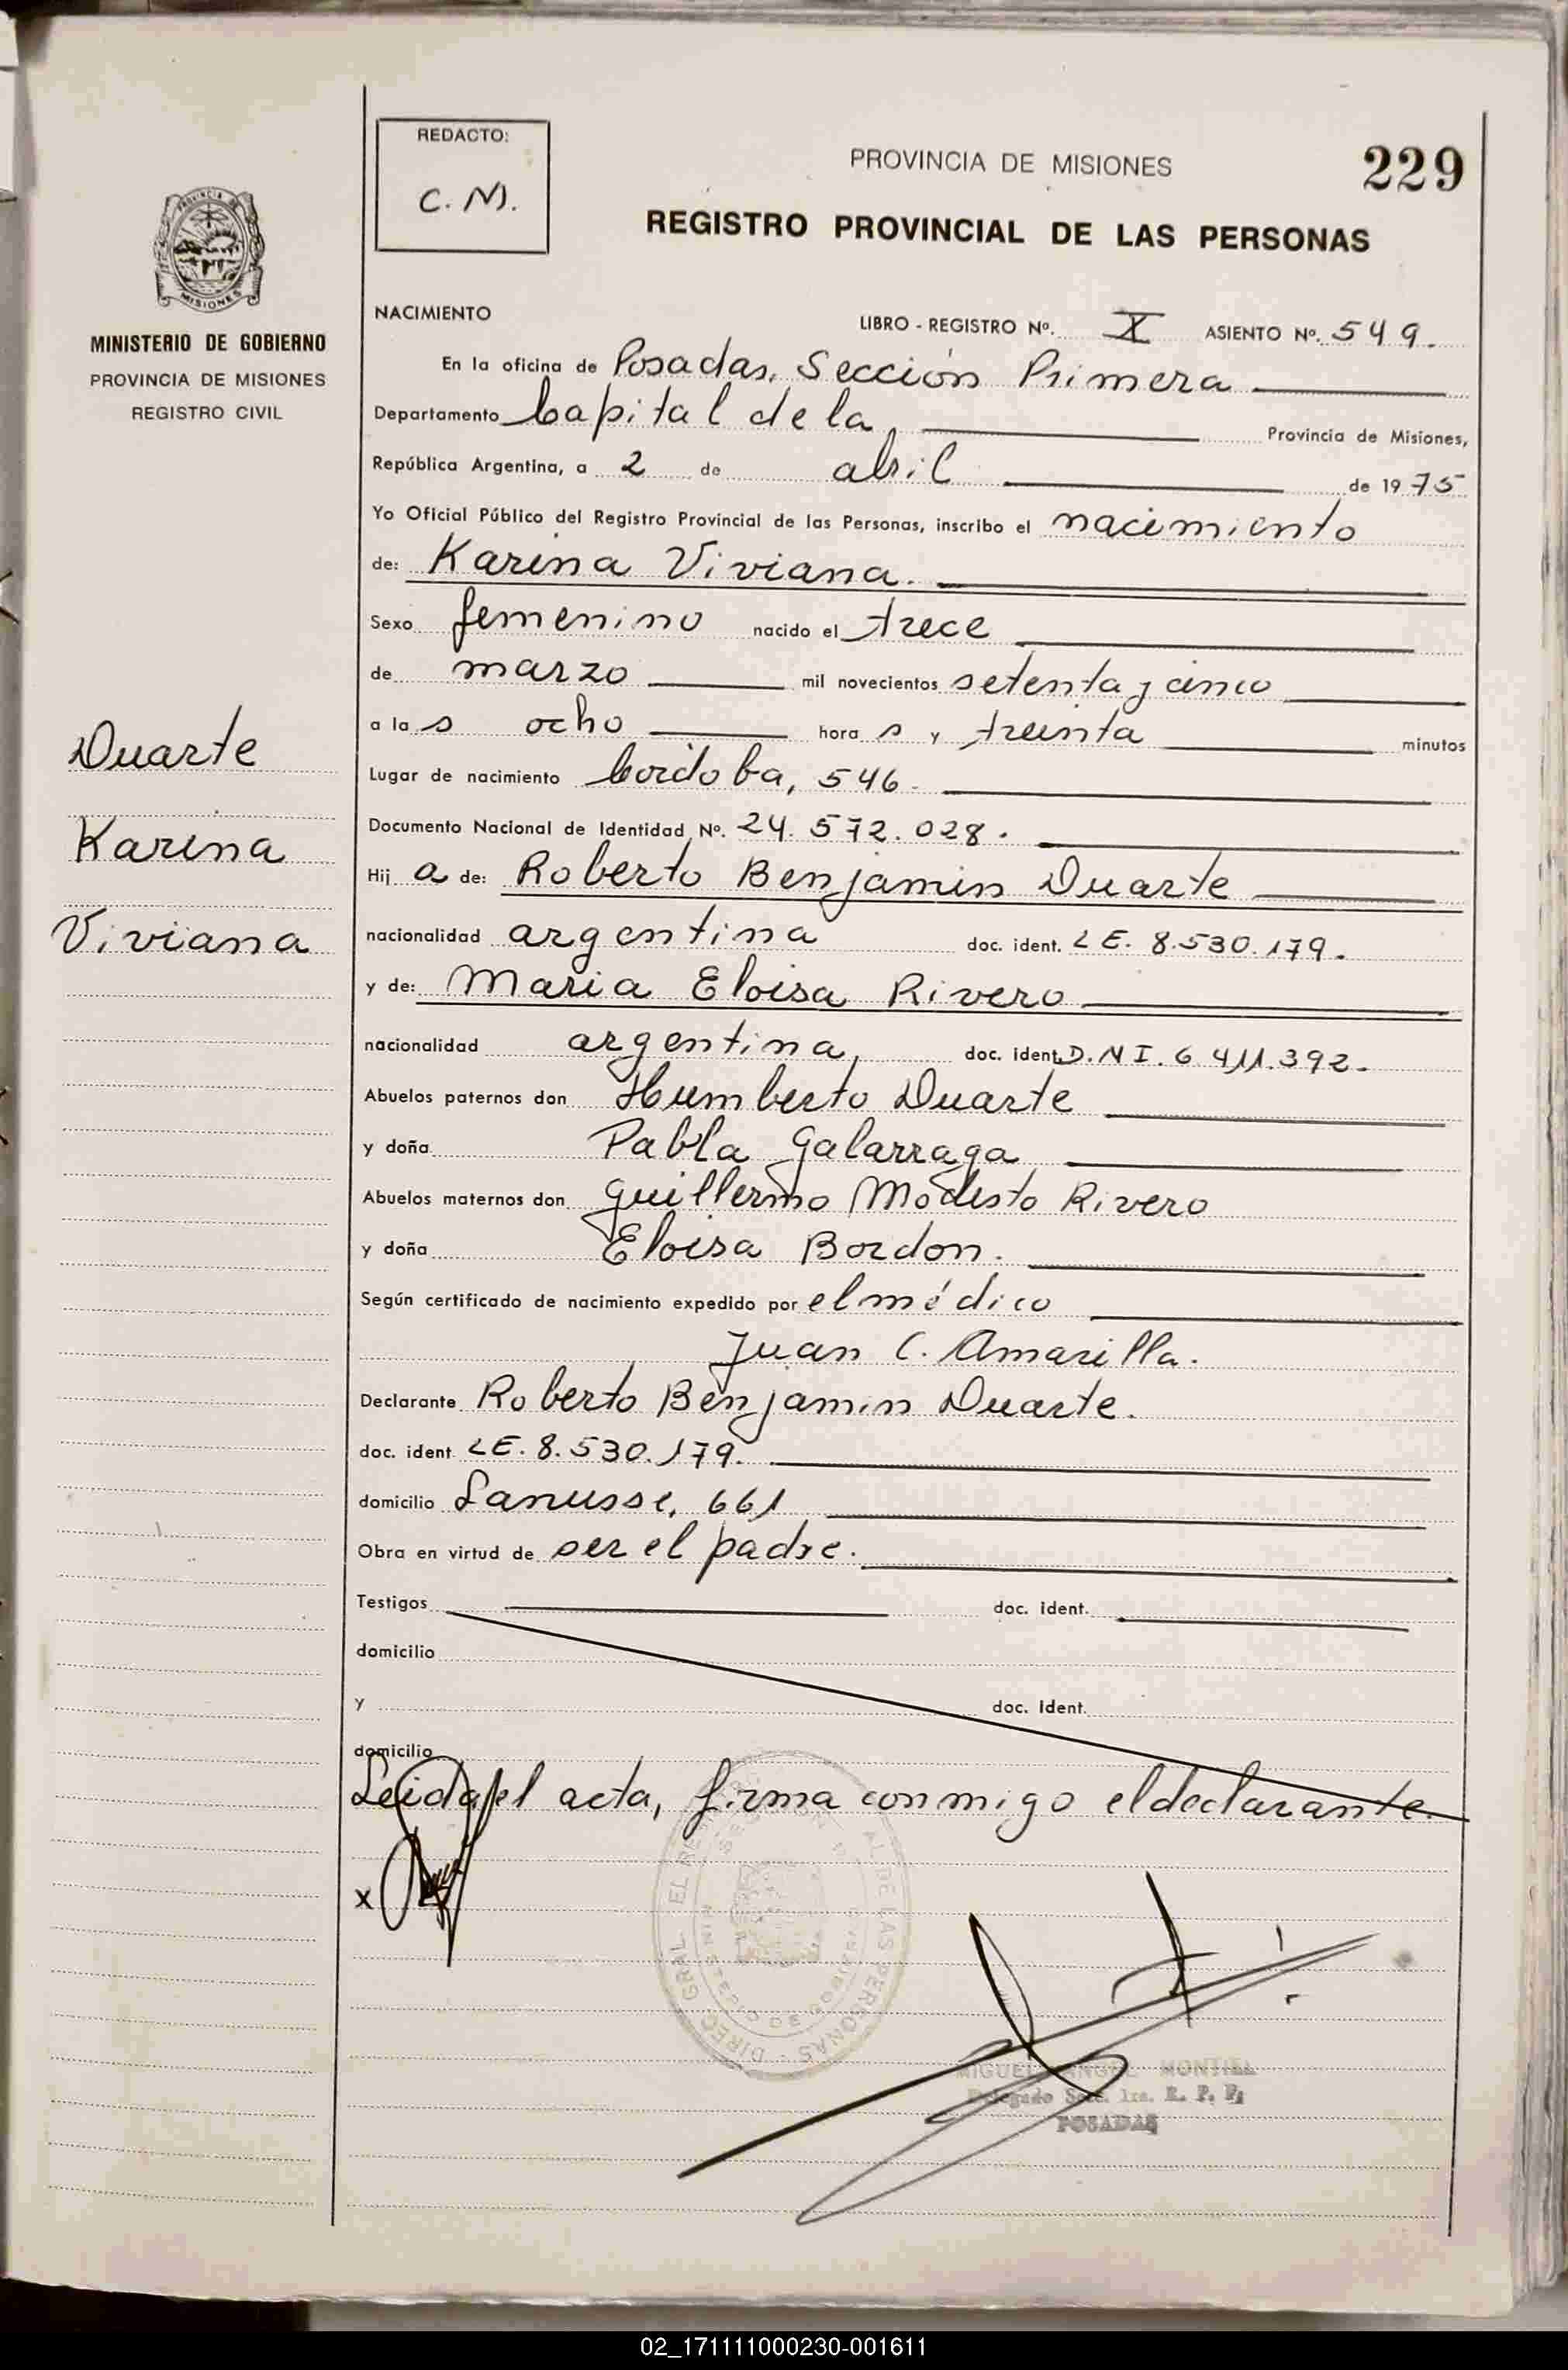 REDACTO:
C. M.
PROVINCIA DE MISIONES
229
REGISTRO PROVINCIAL DE LAS PERSONAS
MISIONES
MINISTERIO DE GOBIERNO
PROVINCIA DE MISIONES
REGISTRO CIVIL
Duarte
Karina
Viviana
NACIMIENTO
LIBRO - REGISTRO Nº. X ASIENTO Nº. 549.
En la oficina de Posadas, Sección Primera
Departamento Capital de la Provincia de Misiones,
República Argentina, a 2 de abril de 1975
Yo Oficial Público del Registro Provincial de las Personas, inscribo el nacimiento
de: Karina Viviana.
Sexo femenino nacido el trece
de marzo mil novecientos setenta y cinco
a la s ocho hora s y treinta minutos
Lugar de nacimiento Cordoba, 546.
Documento Nacional de Identidad Nº. 24.572.028.
Hij a de: Roberto Benjamin Duarte
nacionalidad argentina doc. ident. L E. 8.530.179.
y de: Maria Eloisa Rivero
nacionalidad argentina, doc. ident. D.N I. 6 411.392.
Abuelos paternos don Humberto Duarte
y doña Pabla Galarraga
Abuelos maternos don Guillermo Modesto Rivero
y doña Eloisa Bordon.
Según certificado de nacimiento expedido por el médico
Juan C. Amarilla.
Declarante Roberto Benjamin Duarte.
doc. ident. L E. 8.530.179.
domicilio Lanusse, 661
Obra en virtud de ser el padre.
Testigos doc. ident.
domicilio
y doc. ident.
domicilio
Leida el acta, firma conmigo el declarante.
x
DIREC. GRAL. DE LAS PERSONAS
MIGUEL ANGEL MONTIEL
Delegado Secc. 1ra. R. P. P.
POSADAS
02_171111000230-001611